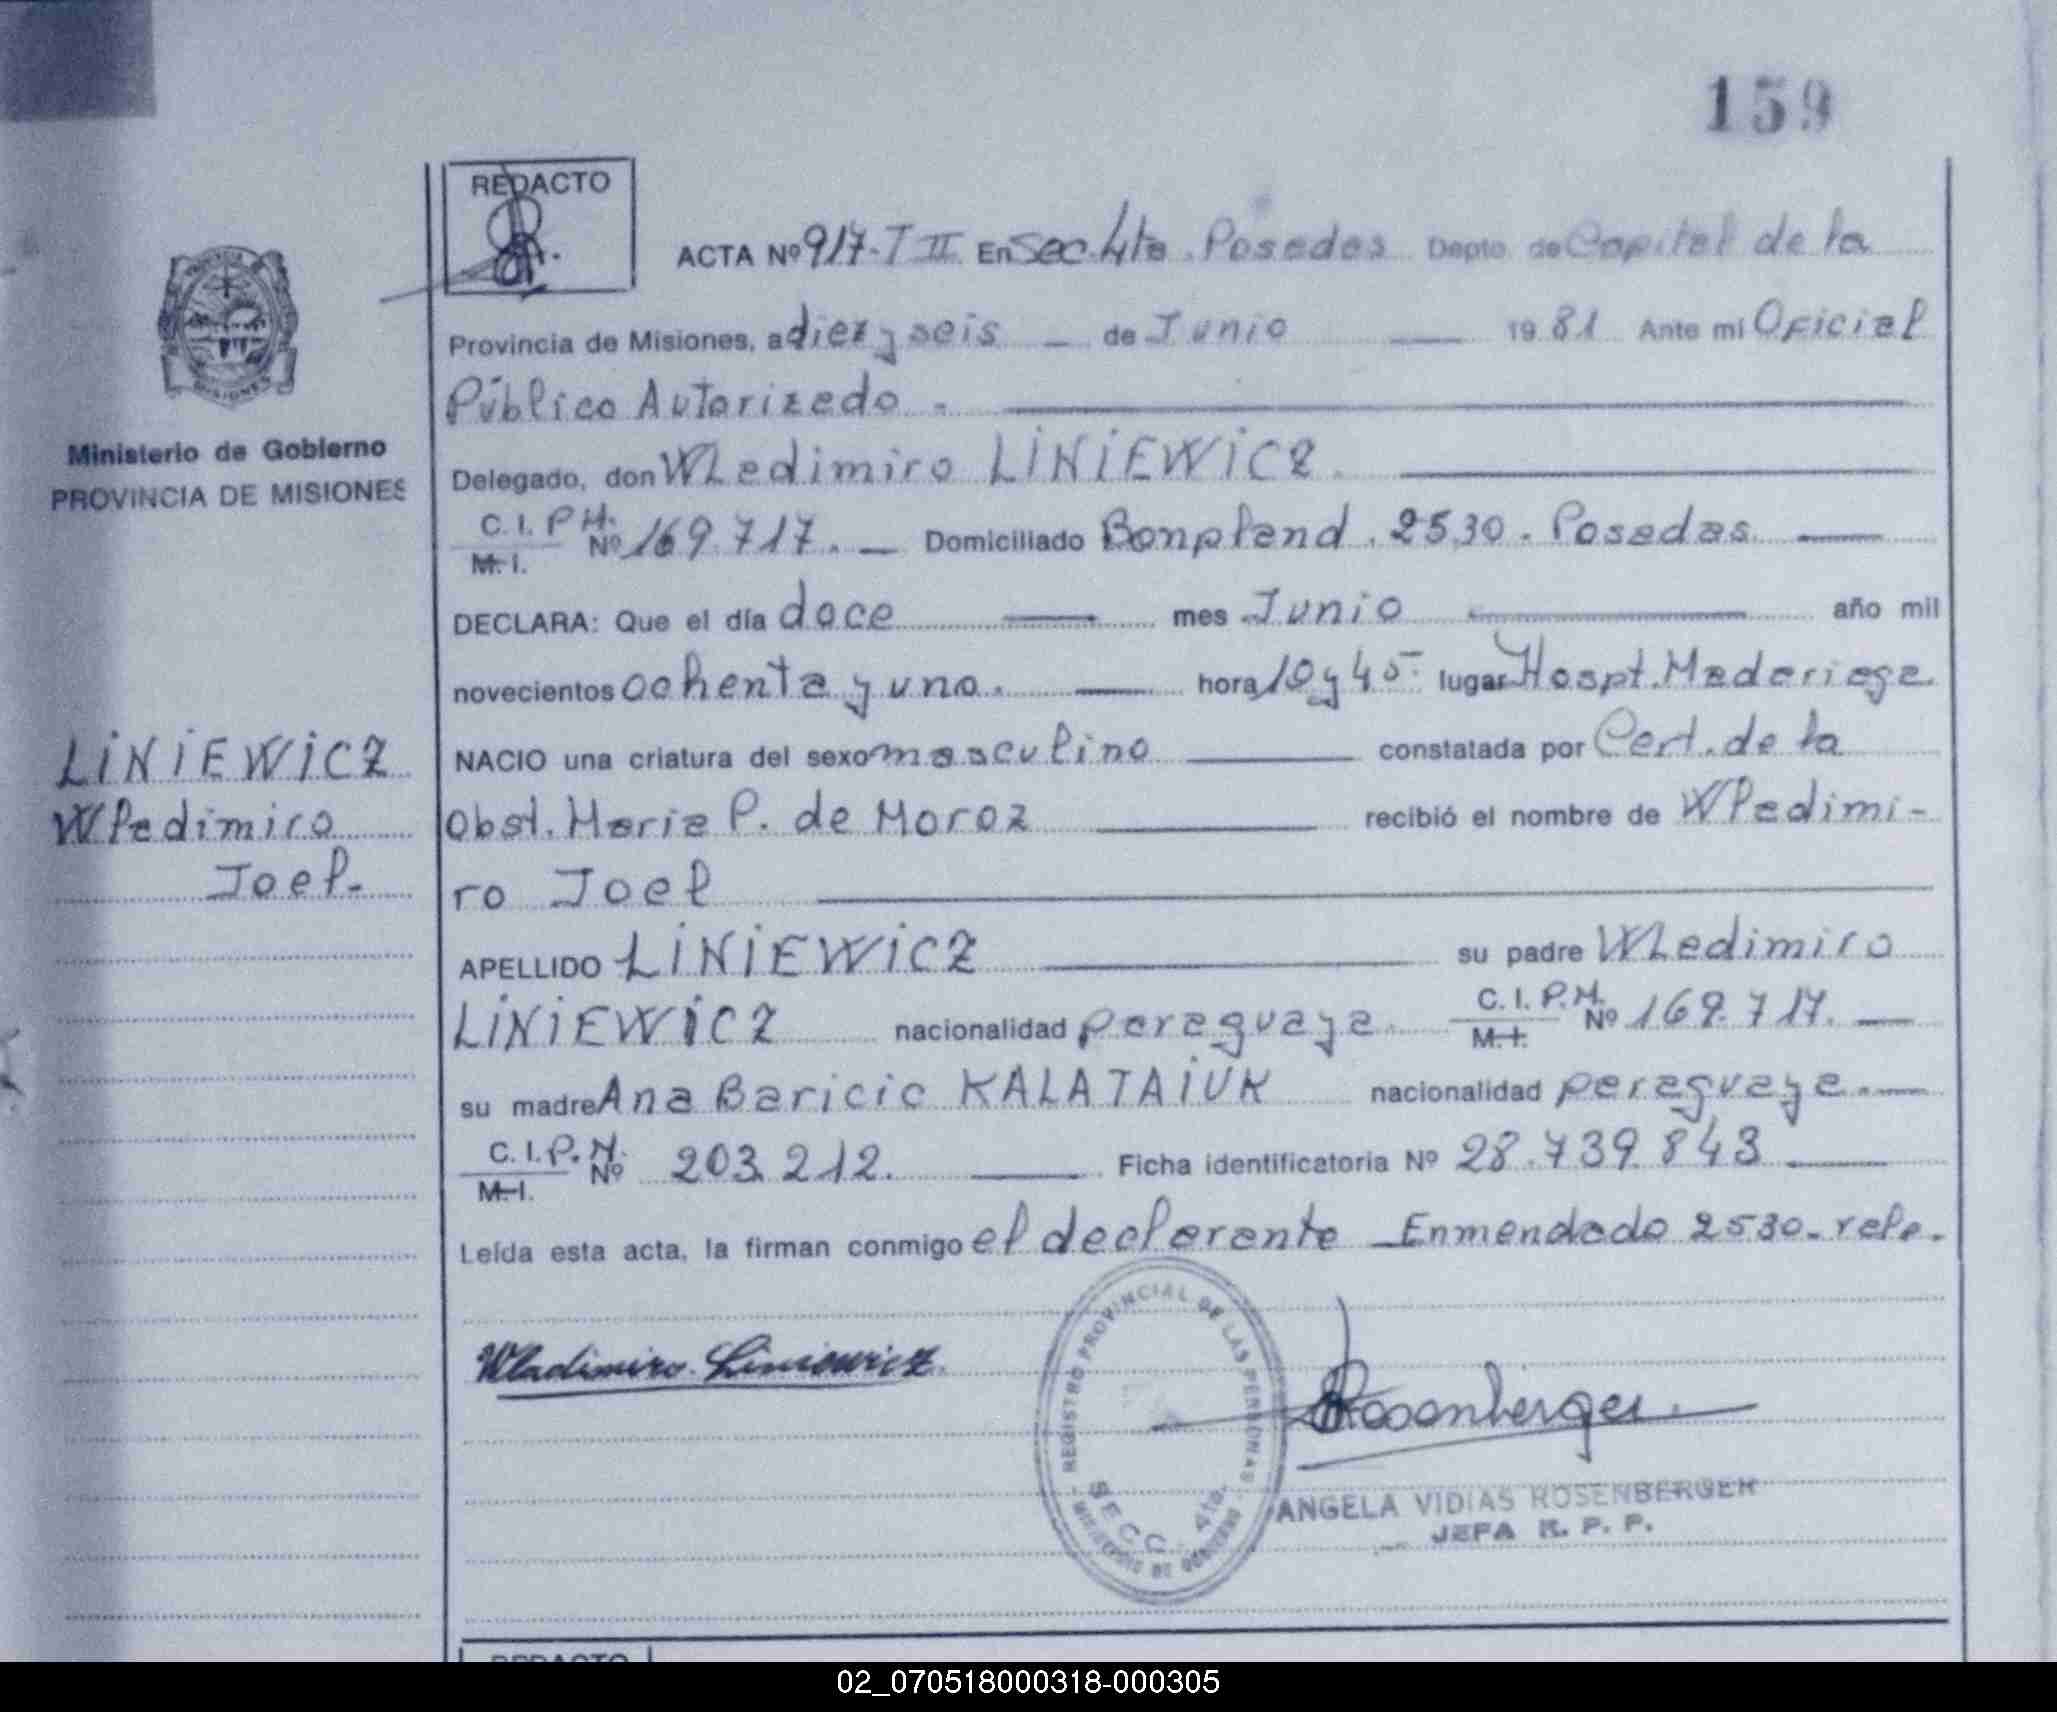 159
REDACTO
ACTA Nº 917-T II En Sec. 4ta. Posadas Depto de Capital de la
Provincia de Misiones, a diez y seis — de Junio — 1981 Ante mi Oficial
Público Autorizado.
Ministerio de Gobierno
PROVINCIA DE MISIONES
Delegado, don WLadimiro LINIEWICZ.
C. I. P M. M. I. Nº 169.717. — Domiciliado Bonpland. 2530. Posadas —
DECLARA: Que el día doce — mes Junio — año mil
novecientos ochenta y uno. — hora 10 y 45 lugar Hospt. Madariaga.
NACIO una criatura del sexo masculino — constatada por Cert. de la
Obst. Maria P. de Moroz — recibió el nombre de Wladimi-
ro Joel
LINIEWICZ
Wladimiro
Joel.
APELLIDO LINIEWICZ — su padre WLadimiro
LINIEWICZ nacionalidad paraguaya. C. I. P. M. M. I. Nº 169.717. —
su madre Ana Baricic KALATAIUK nacionalidad paraguaya. —
C. I. P. M. M. I. Nº 203.212. — Ficha identificatoria Nº 28.739.843 —
Leída esta acta, la firman conmigo el declarante — Enmendado 2530.
Wladimiro Liniewicz.
REGISTRO PROVINCIAL DE LAS PERSONAS
SECC. 4ta.
MINISTERIO DE GOBIERNO
Rosenberger
ANGELA VIDIAS ROSENBERGER
JEFA R. P. P.
REDACTO
02_070518000318-000305